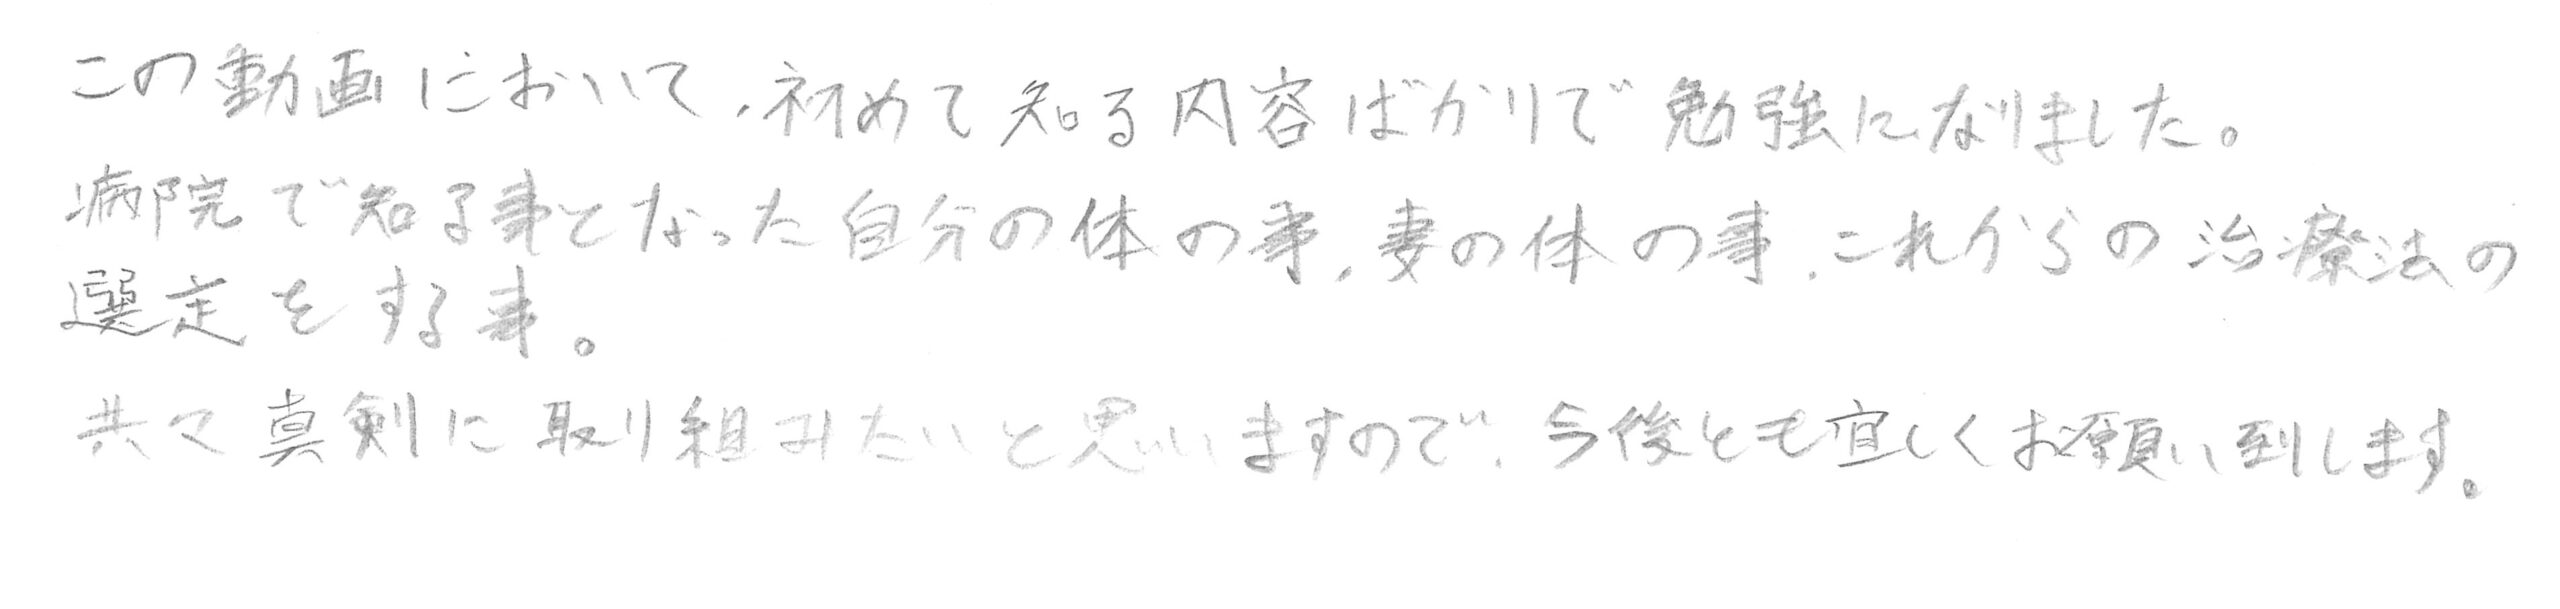 この動画において、初めて知る内容ばかりで勉強になりました。
病院で知る事となった自分の体の事、妻の体の事、これからの治療法の
選定をする事。
共々真剣に取り組みたいと思いますので、今後とも宜しくお願い到します。